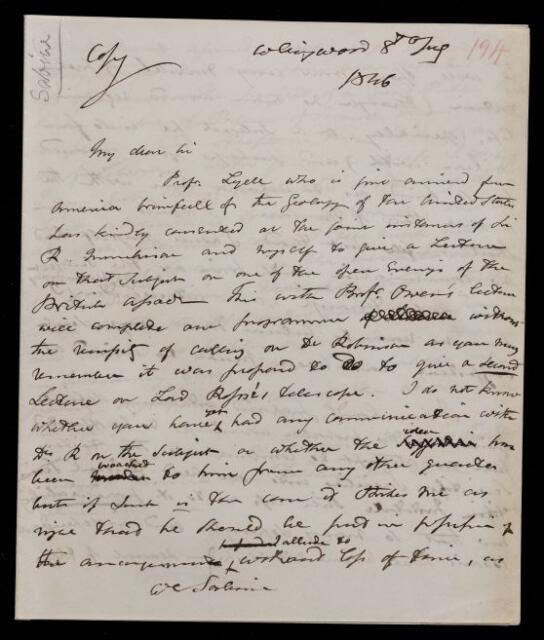 Sabine
Copy
Collingwood 8th Aug
194
1846
My dear Sir
Profr. Lyell who is just arrived from
America brimfull of the Geology of the United States
has kindly consented at the joint instances of Sir
R. Murchison and myself to give a Lecture
on that Subject on one of the open Evenings of the
British Assocn. This with Profr. Owen's lecture
will complete our programme without
the necessity of calling on Dr Robinson as you may
remember it was proposed to do to give a second
Lecture on Lord Rosse's telescope. I do not know
whether you have yet had any communication with
Dr R on the Subject or whether the idea has
been broached to him from any other quarter
but if such is the case it strikes me as
right that he should be put in possession of
the arrangement allude to without loss of time, as
Col Sabine